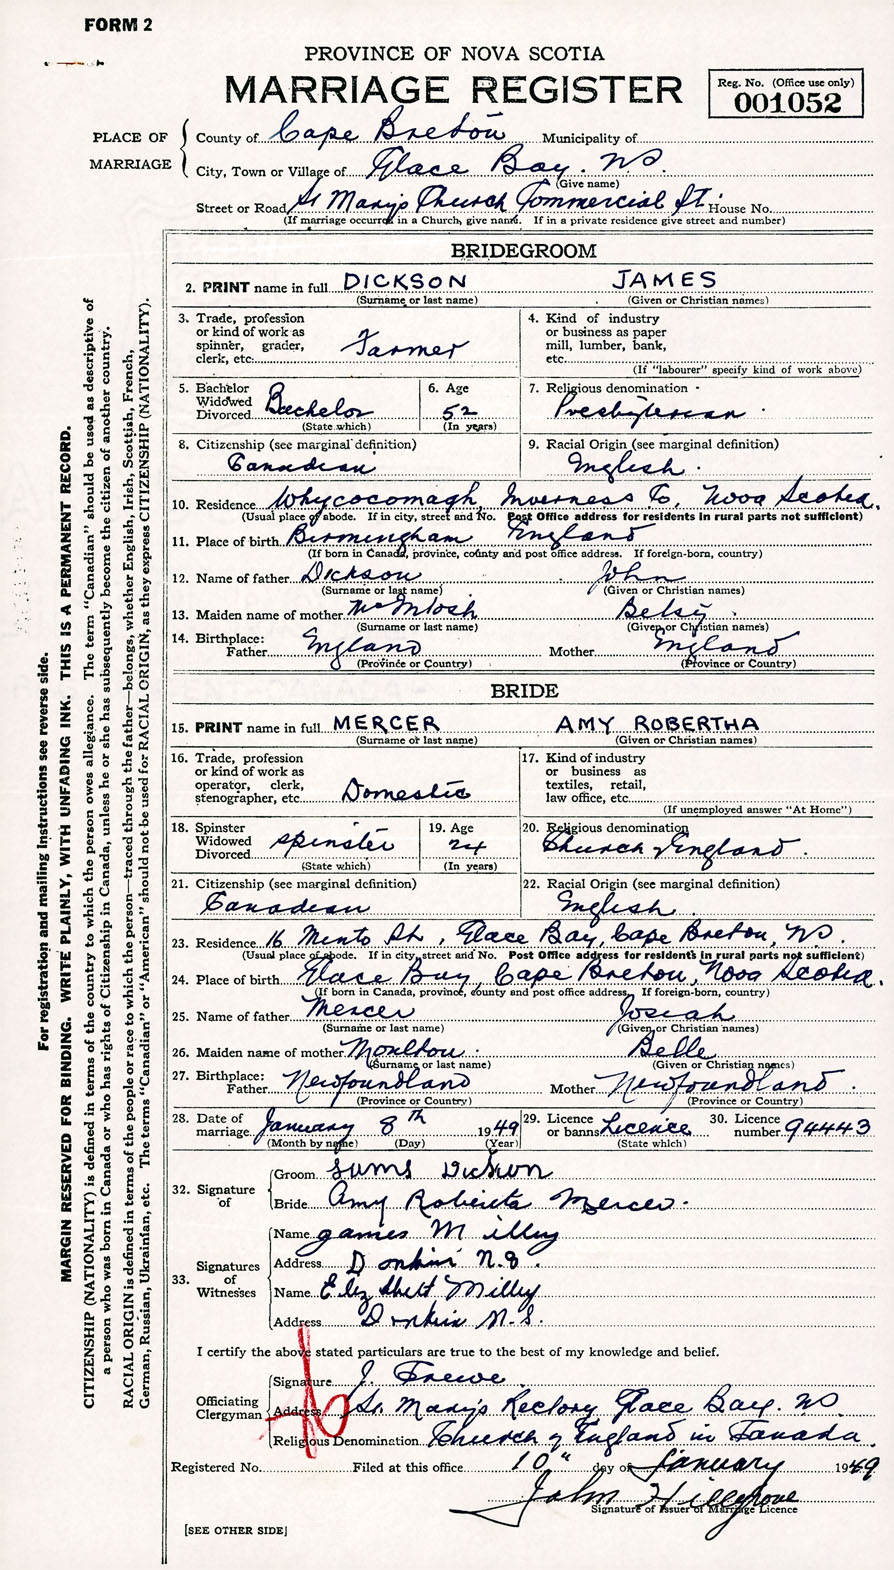 FORM 2
PROVINCE OF NOVA SCOTIA
MARRIAGE REGISTER
Reg. No. (Office use only)
001052
PLACE OF MARRIAGE
County of Cape Breton Municipality of
City, Town or Village of Glace Bay. NS.
(Give name)
Street or Road St Mary's Church Commercial St. House No.
(If marriage occurred in a Church, give name. If in a private residence give street and number)
BRIDEGROOM
2. PRINT name in full DICKSON JAMES
(Surname or last name) (Given or Christian names)
3. Trade, profession or kind of work as spinner, grader, clerk, etc. Farmer
4. Kind of industry or business as paper mill, lumber, bank, etc.
(If "labourer" specify kind of work above)
5. Bachelor Widowed Divorced Bachelor
(State which)
6. Age 52
(In years)
7. Religious denomination Presbyterian
8. Citizenship (see marginal definition) Canadian
9. Racial Origin (see marginal definition) English
10. Residence Whycocomagh, Inverness Co, Nova Scotia.
(Usual place of abode. If in city, street and No. Post Office address for residents in rural parts not sufficient)
11. Place of birth Birmingham England
(If born in Canada, province, county and post office address. If foreign-born, country)
12. Name of father Dickson John
(Surname or last name) (Given or Christian names)
13. Maiden name of mother McIntosh Betsy
(Surname or last name) (Given or Christian names)
14. Birthplace: Father England Mother England
(Province or Country) (Province or Country)
BRIDE
15. PRINT name in full MERCER AMY ROBERTHA
(Surname or last name) (Given or Christian names)
16. Trade, profession or kind of work as operator, clerk, stenographer, etc. Domestic
17. Kind of industry or business as textiles, retail, law office, etc.
(If unemployed answer "At Home")
18. Spinster Widowed Divorced spinster
(State which)
19. Age 24
(In years)
20. Religious denomination Church of England.
21. Citizenship (see marginal definition) Canadian
22. Racial Origin (see marginal definition) English
23. Residence 16 Minto St, Glace Bay, Cape Breton, NS.
(Usual place of abode. If in city, street and No. Post Office address for residents in rural parts not sufficient)
24. Place of birth Glace Bay, Cape Breton, Nova Scotia.
(If born in Canada, province, county and post office address. If foreign-born, country)
25. Name of father Mercer Josiah
(Surname or last name) (Given or Christian names)
26. Maiden name of mother Moulton Belle
(Surname or last name) (Given or Christian names)
27. Birthplace: Father Newfoundland Mother Newfoundland.
(Province or Country) (Province or Country)
28. Date of marriage January 8th 1949
(Month by name) (Day) (Year)
29. Licence or banns Licence
(State which)
30. Licence number 94443
32. Signature of
Groom Dickson
Bride Amy Roberta Mercer.
33. Signatures of Witnesses
Name james Milley
Address Donkin N.S.
Name Elizabett Milley
Address Donkin N.S.
I certify the above stated particulars are true to the best of my knowledge and belief.
Officiating Clergyman
Signature J. Frewe
Address St. Mary's Rectory Glace Bay. NS
Religious Denomination Church of England in Canada.
Registered No. Filed at this office 10" day of January 1949
John Hillgrove
Signature of Issuer of Marriage Licence
[SEE OTHER SIDE]
For registration and mailing instructions see reverse side.
MARGIN RESERVED FOR BINDING. WRITE PLAINLY, WITH UNFADING INK. THIS IS A PERMANENT RECORD.
CITIZENSHIP (NATIONALITY) is defined in terms of the country to which the person owes allegiance. The term "Canadian" should be used as descriptive of
a person who was born in Canada or who has rights of Citizenship in Canada, unless he or she has subsequently become the citizen of another country.
RACIAL ORIGIN is defined in terms of the people or race to which the person—traced through the father—belongs, whether English, Irish, Scottish, French,
German, Russian, Ukrainian, etc. The terms "Canadian" or "American" should not be used for RACIAL ORIGIN, as they express CITIZENSHIP (NATIONALITY).